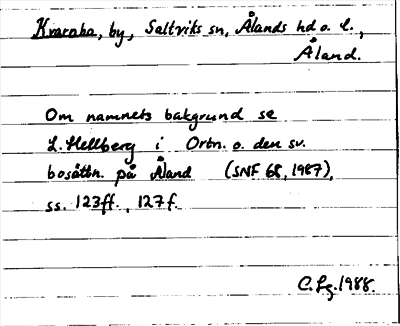 Kvarnbo, by, Saltviks sn, Ålands hd o. l.,
Åland.
Om namnets bakgrund se
L. Hellberg i Ortn. o. den sv.
bosättn. på Åland (SNF 68, 1987),
ss. 123ff., 127f.
C. Lg. 1988.